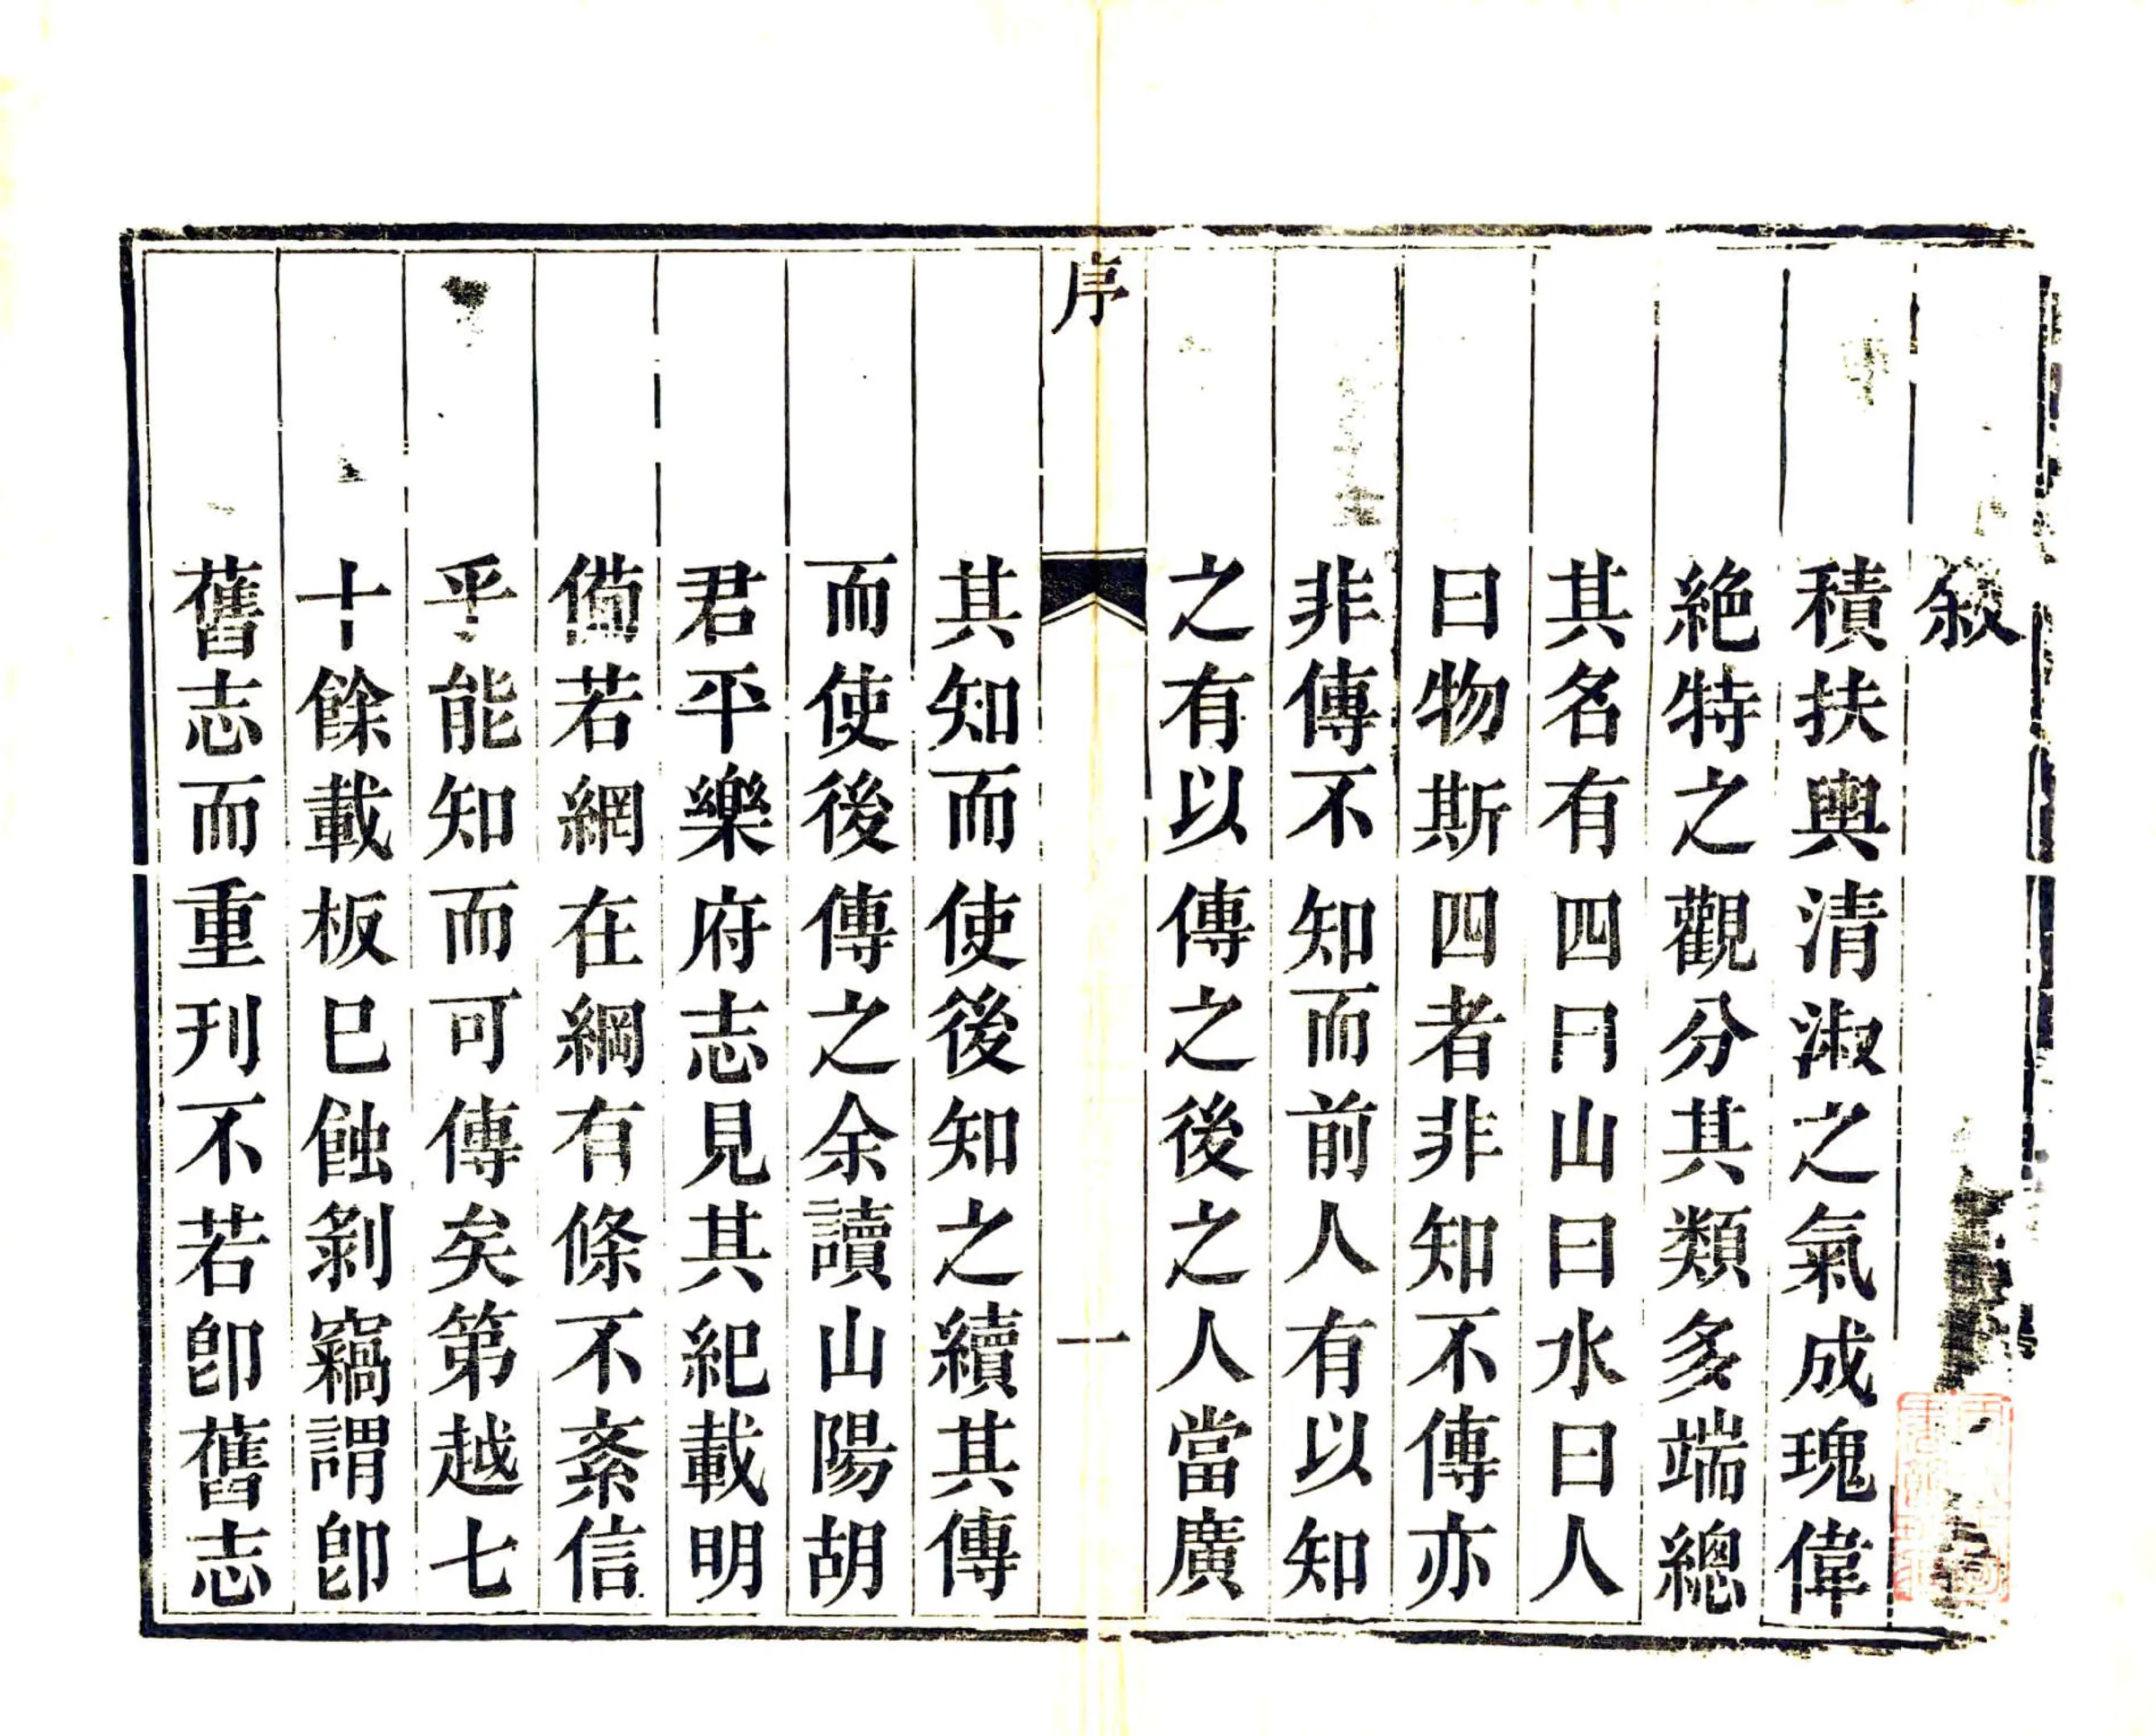 敘
積扶輿清淑之氣成瑰偉
絶特之觀分其類多端總
其名有四曰山曰水曰人
曰物斯四者非知不傳亦
非傳不知而前人有以知
之有以傳之後之人當廣
序
一
其知而使後知之續其傳
而使後傳之余讀山陽胡
君平樂府志見其紀載明
備若網在綱有條不紊信
乎能知而可傳矣第越七
十餘載板巳蝕剝竊謂卽
舊志而重刊不若卽舊志